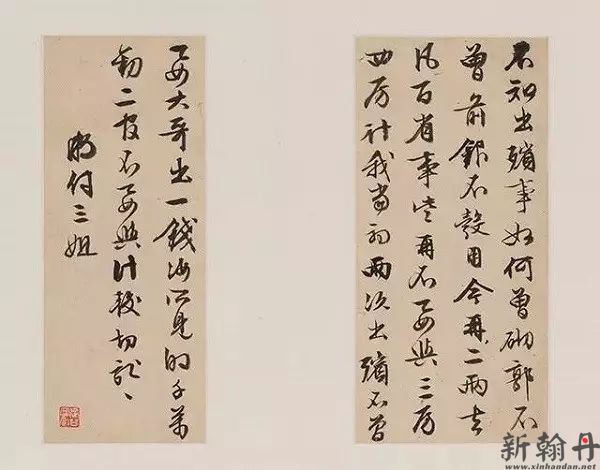 不知出殯事如何曾砌郭不
曾前銀不彀用今再二兩去
凡百省事些再不要與三房
四房計我當初兩次出殯不曾
要大哥出一錢汝所見的千萬
勸二官不要與計較切記〻
明付三姐
新翰丹
www.xinhandan.net